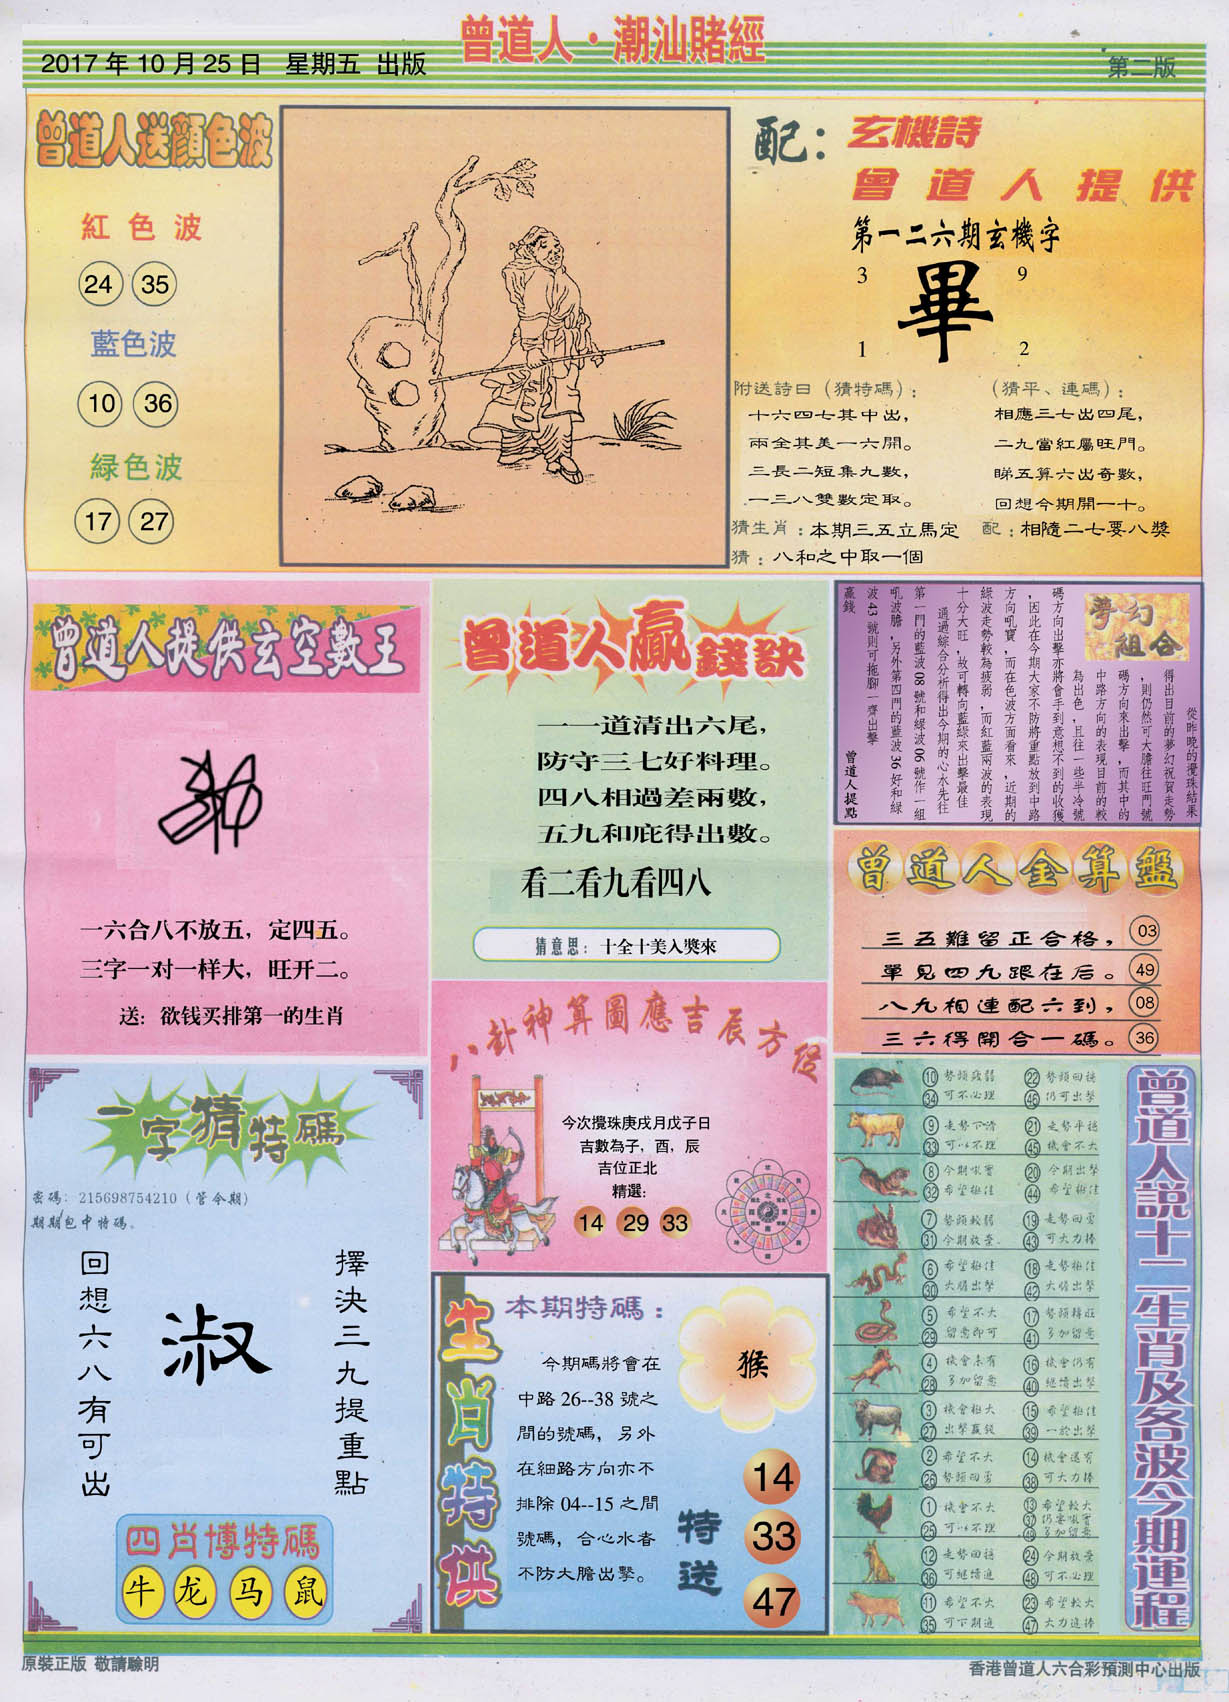 曾道人·潮汕賭經
2017年10月25日 星期五 出版
第二版
曾道人送顏色波
紅色波
24 35
藍色波
10 36
緑色波
17 27
配：
玄機詩
曾道人提供
第一二六期玄機字
3 9
畢
1 2
附送詩曰（猜特碼）：
十六四七其中出，
兩全其美一六開。
三長二短集九數，
一三八雙數定取。
（猜平、連碼）：
相應三七出四尾，
二九當紅屬旺門。
睇五算六出奇數，
回想今期開一十。
猜生肖：本期三五立馬定
配：相隨二七要八獎
猜：八和之中取一個
曾道人提供玄空數王
一六合八不放五，定四五。
三字一对一样大，旺开二。
送：欲钱买排第一的生肖
曾道人赢錢訣
一一道清出六尾，
防守三七好料理。
四八相過差兩數，
五九和庇得出數。
看二看九看四八
猜意思：十全十美入獎來
夢幻組合
從昨晚的攪珠結果
得出目前的夢幻祝賀走勢
，則仍然可大膽往旺門號
碼方向來出擊，而其中的
中路方向的表現目前的較
為出色，且往一些半冷號
碼方向出擊亦將會手到意想不到的收獲
，因此在今期大家不防將重點放到中路
方向吼寶，而在色波方面看來，近期的
綠波走勢較為疲弱，而紅藍兩波的表現
十分大旺，故可轉向藍綠來出擊最佳
通過綜合分析得出今期的心水先往
第一門的藍波08號和綠波06號作一組
吼波膽，另外第四門的藍波36好和綠
波43號則可拖腳一齊出擊
贏錢
曾道人提點
曾道人金算盤
三五難留正合格， 03
單見四九跟在后。 49
八九相連配六到， 08
三六得開合一碼。 36
八卦神算圖應吉辰方位
今次攪珠庚戌月戊子日
吉數為子，酉，辰
吉位正北
精選：
14 29 33
一字猜特碼
密碼：215698754210（管今期）
期期包中特碼。
擇決三九提重點
淑
回想六八有可出
四肖博特碼
牛 龙 马 鼠
生肖特供
本期特碼：
今期碼將會在
中路26--38號之
間的號碼，另外
在細路方向亦不
排除04--15之間
號碼，合心水者
不防大膽出擊。
猴
特送
14
33
47
曾道人説十二生肖及各波今期運程
10 勢頭疲弱 22 勢頭回穩
34 可不必理 46 仍可出擊
9 走勢下滑 21 走勢平穩
33 可以不理 45 機會不大
8 今期吼寶 20 今期出擊
32 希望極佳 44 希望極佳
7 勢頭較弱 19 走勢回勇
31 今期放棄 43 可大力捧
6 希望極佳 18 走勢極佳
30 大膽出擊 42 大膽出擊
5 希望不大 17 勢頭轉旺
29 留意即可 41 多加留意
4 機會未有 16 機會仍有
28 多加留意 40 繼續出擊
3 機會極大 15 希望極佳
27 出擊贏錢 39 一於出擊
2 希望不大 14 機會還有
26 勢頭回勇 38 可大力捧
1 機會不大 13 希望較大
37 仍要吼寶
25 可以不理 49 多加留意
12 走勢回穩 24 今期放棄
36 可繼續追 48 可不必理
11 希望不大 23 希望較大
35 可下期追 47 大力追捧
原裝正版 敬請驗明
香港曾道人六合彩預測中心出版